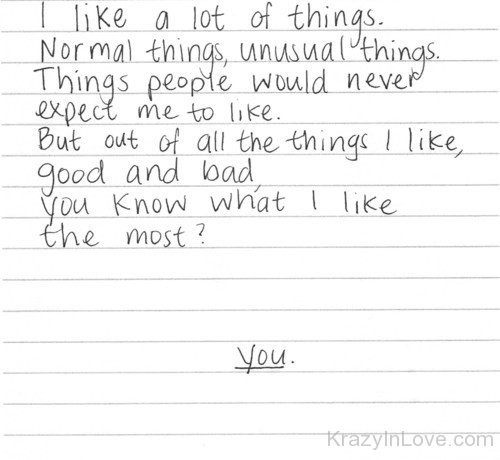 I like a lot of things.
Normal things, unusual things.
Things people would never
expect me to like.
But out of all the things I like,
good and bad,
you know what I like
the most?
you.
KrazyInLove.com